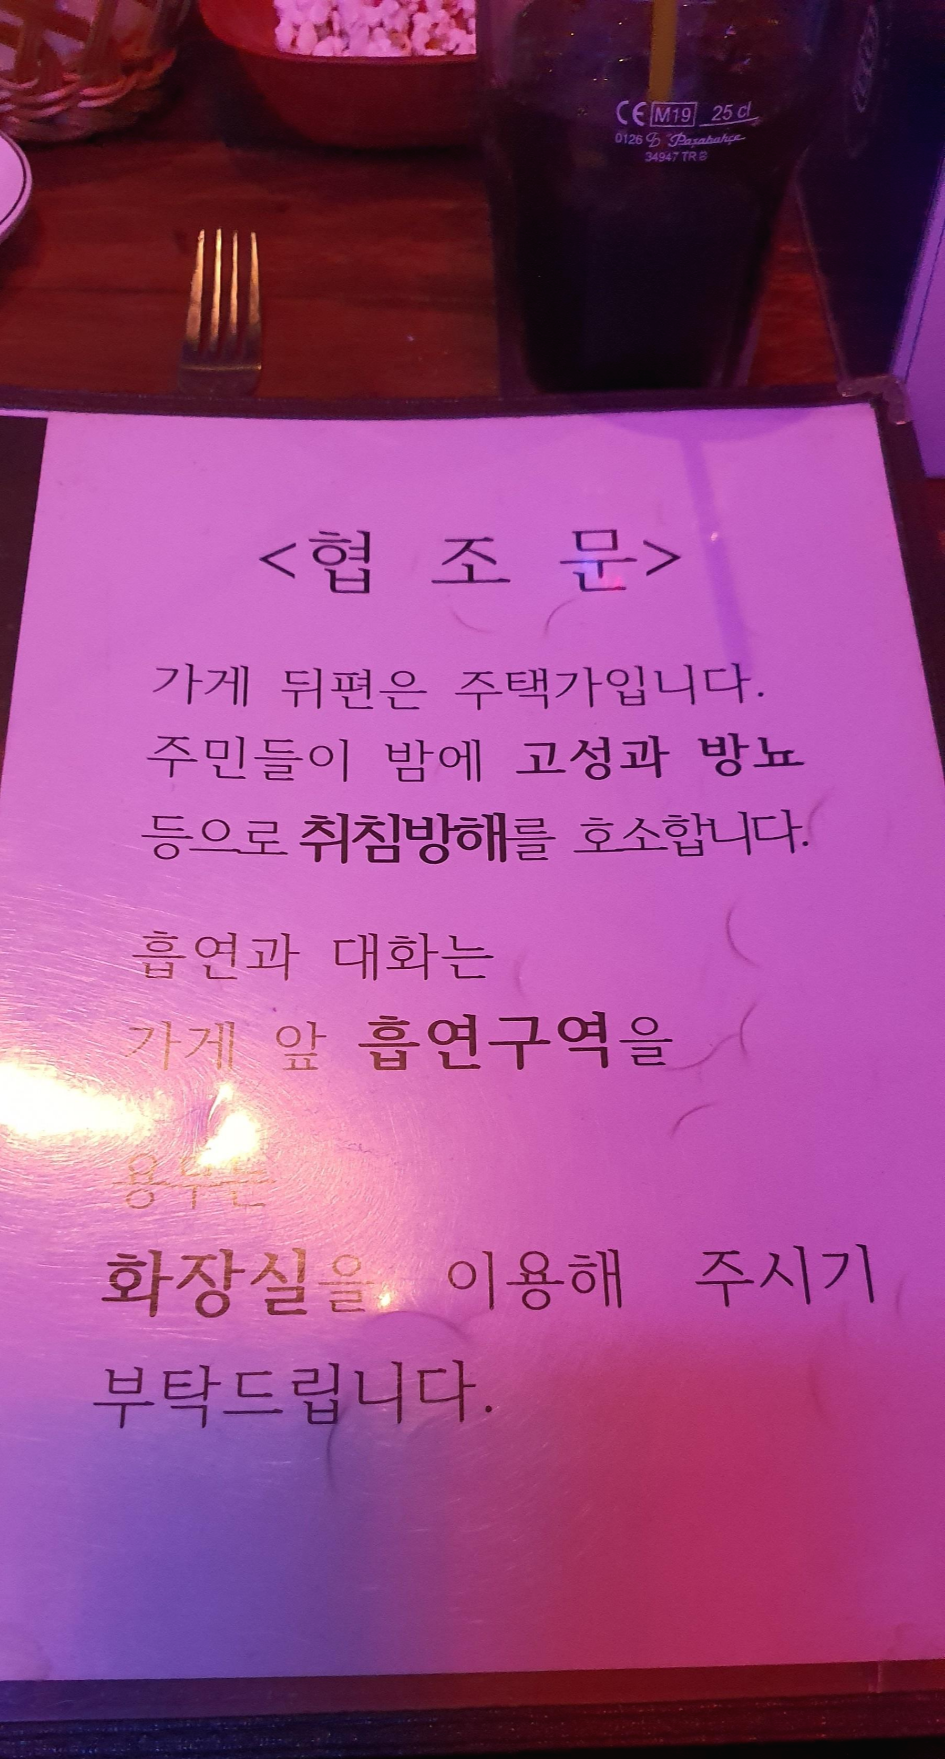 CE M19 25 cl
0126 Paşabahçe
34947 TR
<협 조 문>
가게 뒤편은 주택가입니다.
주민들이 밤에 고성과 방뇨
등으로 취침방해를 호소합니다.
흡연과 대화는
가게 앞 흡연구역을
용무는
화장실을 이용해 주시기
부탁드립니다.